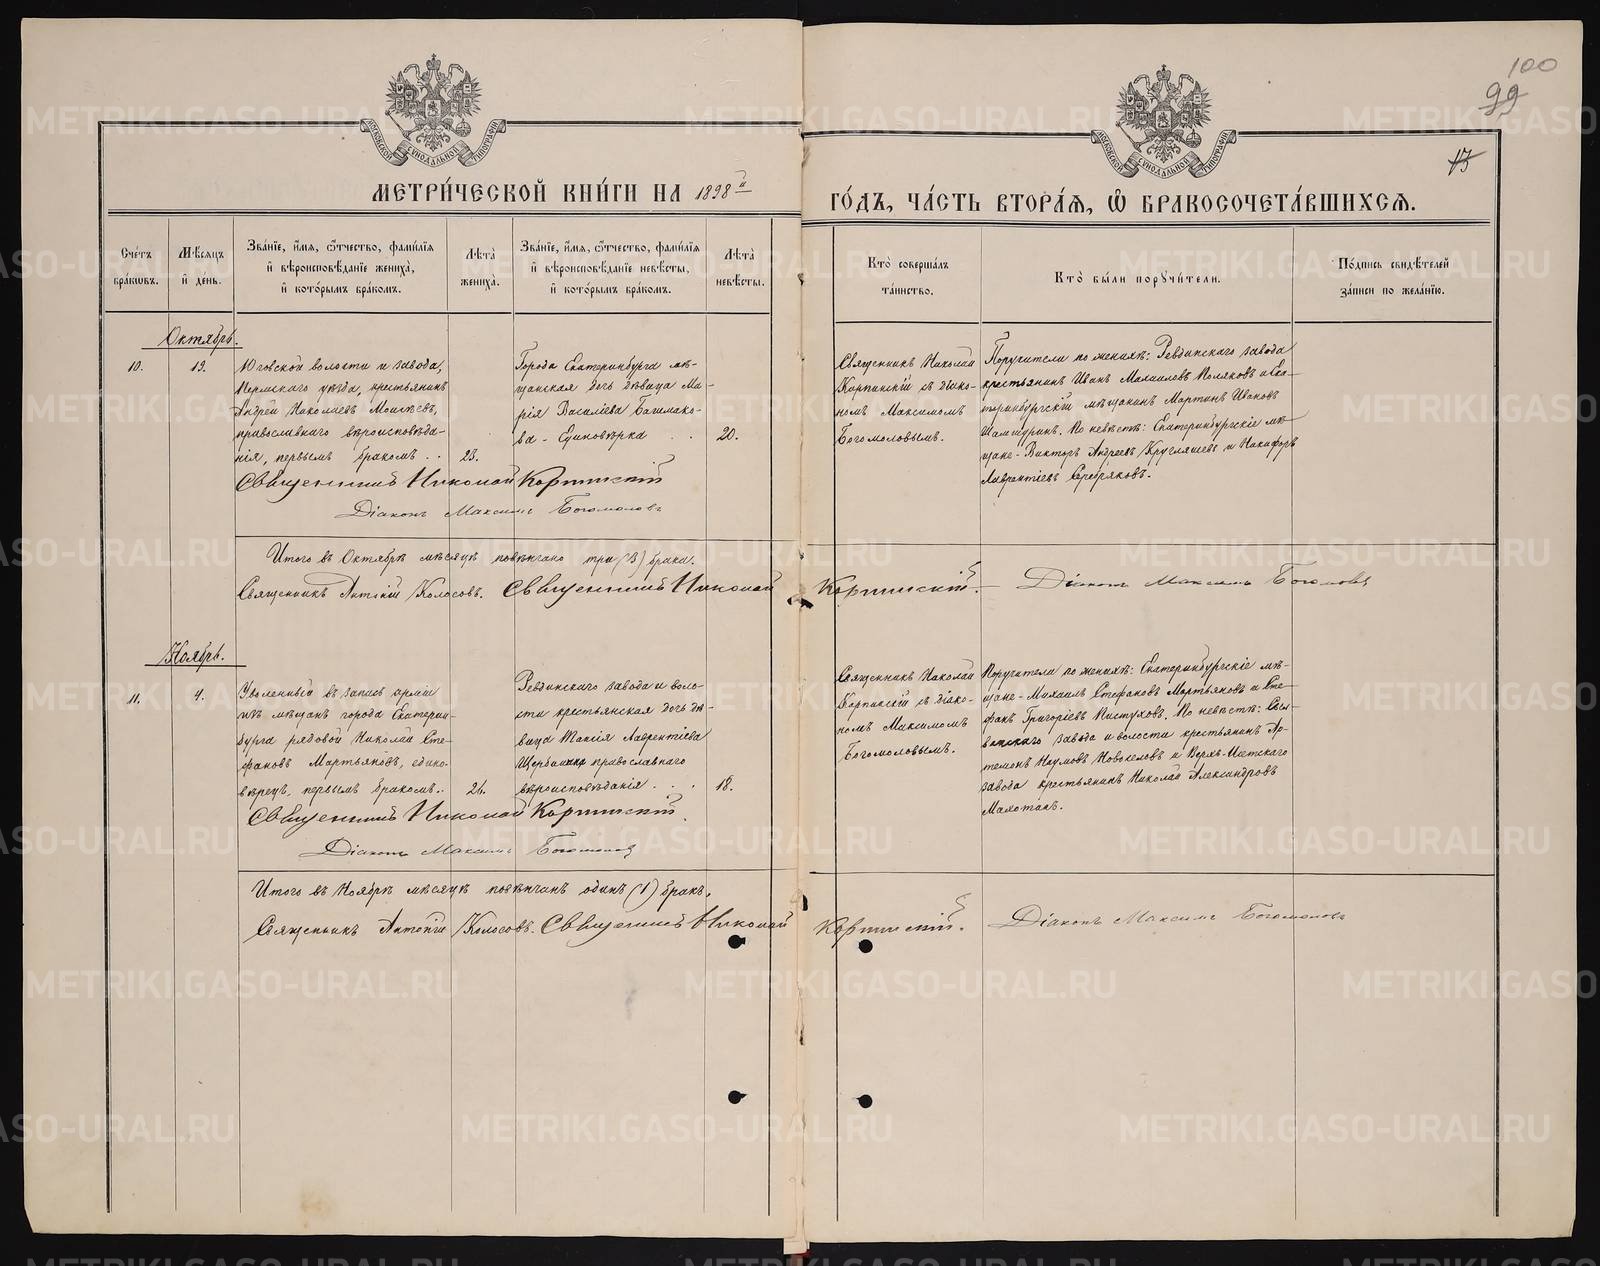 100
99
13
МОСКОВСКОЙ СУНОДАЛЬНОЙ ТИПОГРАФІИ
МОСКОВСКОЙ СУНОДАЛЬНОЙ ТИПОГРАФІИ
МЕТРИ́ЧЕСКОЙ КНИ́ГИ НА 1898й
ГО́ДЪ, ЧА́СТЬ ВТОРА́Ѧ, Ѡ҆ БРАКОСОЧЕТА́ВШИХСѦ.
Сче́тъ бра́кѡвъ.
Мѣ́сѧцъ и҆ де́нь.
Зва́нїе, и҆́мѧ, ѻ҆́тчество, фами́лїѧ
и҆ вѣроисповѣ́данїе жениха̀,
и҆ кото́рымъ бра́комъ.
Лѣта̀
жениха̀.
Зва́нїе, и҆́мѧ, ѻ҆́тчество, фами́лїѧ
и҆ вѣроисповѣ́данїе невѣ́сты,
и҆ кото́рымъ бра́комъ.
Лѣта̀
невѣ́сты.
Кто̀ соверша́лъ
та́инство.
Кто̀ бы́ли порꙋчи́тели.
По́дпись свидѣ́телей
за́писи по жела́нїю.
Октябрь.
10.
19.
Юговской волости и завода,
Пермскаго уѣзда, крестьянинъ
Андрей Николаевъ Моисѣевъ,
православнаго вѣроисповѣда-
нія, первымъ бракомъ ..
23.
Города Екатеринбурга мѣ-
щанская дочь дѣвица Ма-
рія Василіева Башмако-
ва - Единовѣрка . .
20.
Священникъ Николай
Корпинскій съ діако-
номъ Максимомъ
Богомоловымъ.
Поручители по женихѣ: Ревдинскаго завода
крестьянинъ Иванъ Поляковъ и Ека-
теринбургскій мѣщанинъ Мартинъ Ивановъ
По невѣстѣ: Екатеринбургскіе мѣ-
щане - Викторъ Андреевъ Кругляшевъ и Никифоръ
Лаврентіевъ Серебряковъ.
Священникъ Николай Корпинскій
Діаконъ Максимъ Богомоловъ
Итого въ Октябрѣ мѣсяцѣ повѣнчано три (3) брака.
Священникъ Антоній Колосовъ. Священникъ Николай Корпинскій. Діаконъ Максимъ Богомоловъ
Ноябрь.
11.
4.
Уволенный въ запасъ арміи
изъ мѣщанъ города Екатерин-
бурга рядовой Николай Сте-
фановъ Мартьяновъ, едино-
вѣрецъ, первымъ бракомъ..
26.
Ревдинскаго завода и воло-
сти крестьянская дочь дѣ-
вица Таисія Лаврентіева
Щербакова православнаго
вѣроисповѣданія . . .
18.
Священникъ Николай
Корпинскій съ діако-
номъ Максимомъ
Богомоловымъ.
Поручители по женихѣ: Екатеринбургскіе мѣ-
щане - Михаилъ Стефановъ Мартьяновъ и Сте-
фанъ Григоріевъ Пастуховъ. По невѣстѣ:
завода и волости крестьянинъ Ар-
темонъ Наумовъ Новоселовъ и Верхъ-Исетскаго
завода крестьянинъ Николай Александровъ
Священникъ Николай Корпинскій.
Діаконъ Максимъ Богомоловъ
Итого въ Ноябрѣ мѣсяцѣ повѣнчанъ одинъ (1) бракъ.
Священникъ Антоній Колосовъ. Священникъ Николай Корпинскій. Діаконъ Максимъ Богомоловъ
METRIKI.GASO-URAL.RU